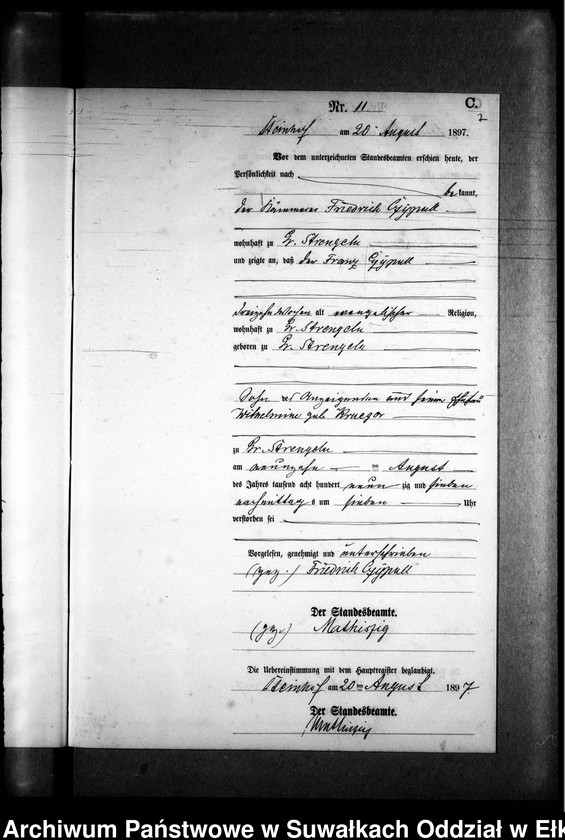 Nr. 11
C.
2
Steinhof am 20. August 1897.
Vor dem unterzeichneten Standesbeamten erschien heute, der
Persönlichkeit nach
be kannt,
der Kämmerer Friedrich Czypull
wohnhaft zu Gr. Strengeln
und zeigte an, daß der Franz Czypull
dreizehn Wochen alt evangelischer Religion,
wohnhaft zu Gr. Strengeln
geboren zu Gr. Strengeln
Sohn des Anzeigenden und seiner Ehefrau
Wilhelmine geb. Krueger
zu Gr. Strengeln
am neunzehn ten August
des Jahres tausend acht hundert neun zig und sieben
nachmittags um sieben Uhr
verstorben sei
Vorgelesen, genehmigt und unterschrieben
(gez.) Friedrich Czypull
Der Standesbeamte.
(gez.) Mathiszig
Die Uebereinstimmung mit dem Hauptregister beglaubigt.
Steinhof am 20 ten August 1897.
Der Standesbeamte.
Mathiszig
Archiwum Państwowe w Suwałkach Oddział w Ełk